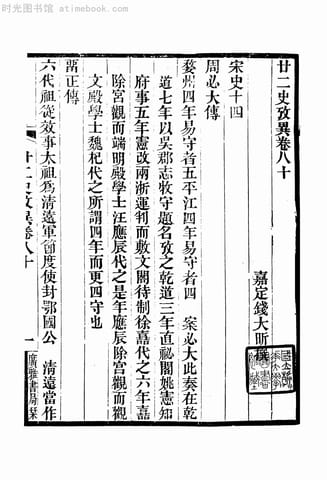 时光图书馆 - atimebook.com
廿二史攷異卷八十
嘉定錢大昕撰
宋史十四
周必大傳
婺州四年易守者五平江四年易守者四 案必大此奏在乾
道七年以吳郡志牧守題名攷之乾道三年直祕閣姚憲知
府事五年憲改兩浙運判而敷文閣待制徐嘉代之六年嘉
除宮觀而端明殿學士汪應辰代之是年應辰除宮觀而觀
文殿學士魏杞代之所謂四年而更四守也
留正傳
六代祖從效事太祖為清遠軍節度使封鄂國公 清遠當作
廿二史攷異卷八十
一
廣雅書局栞